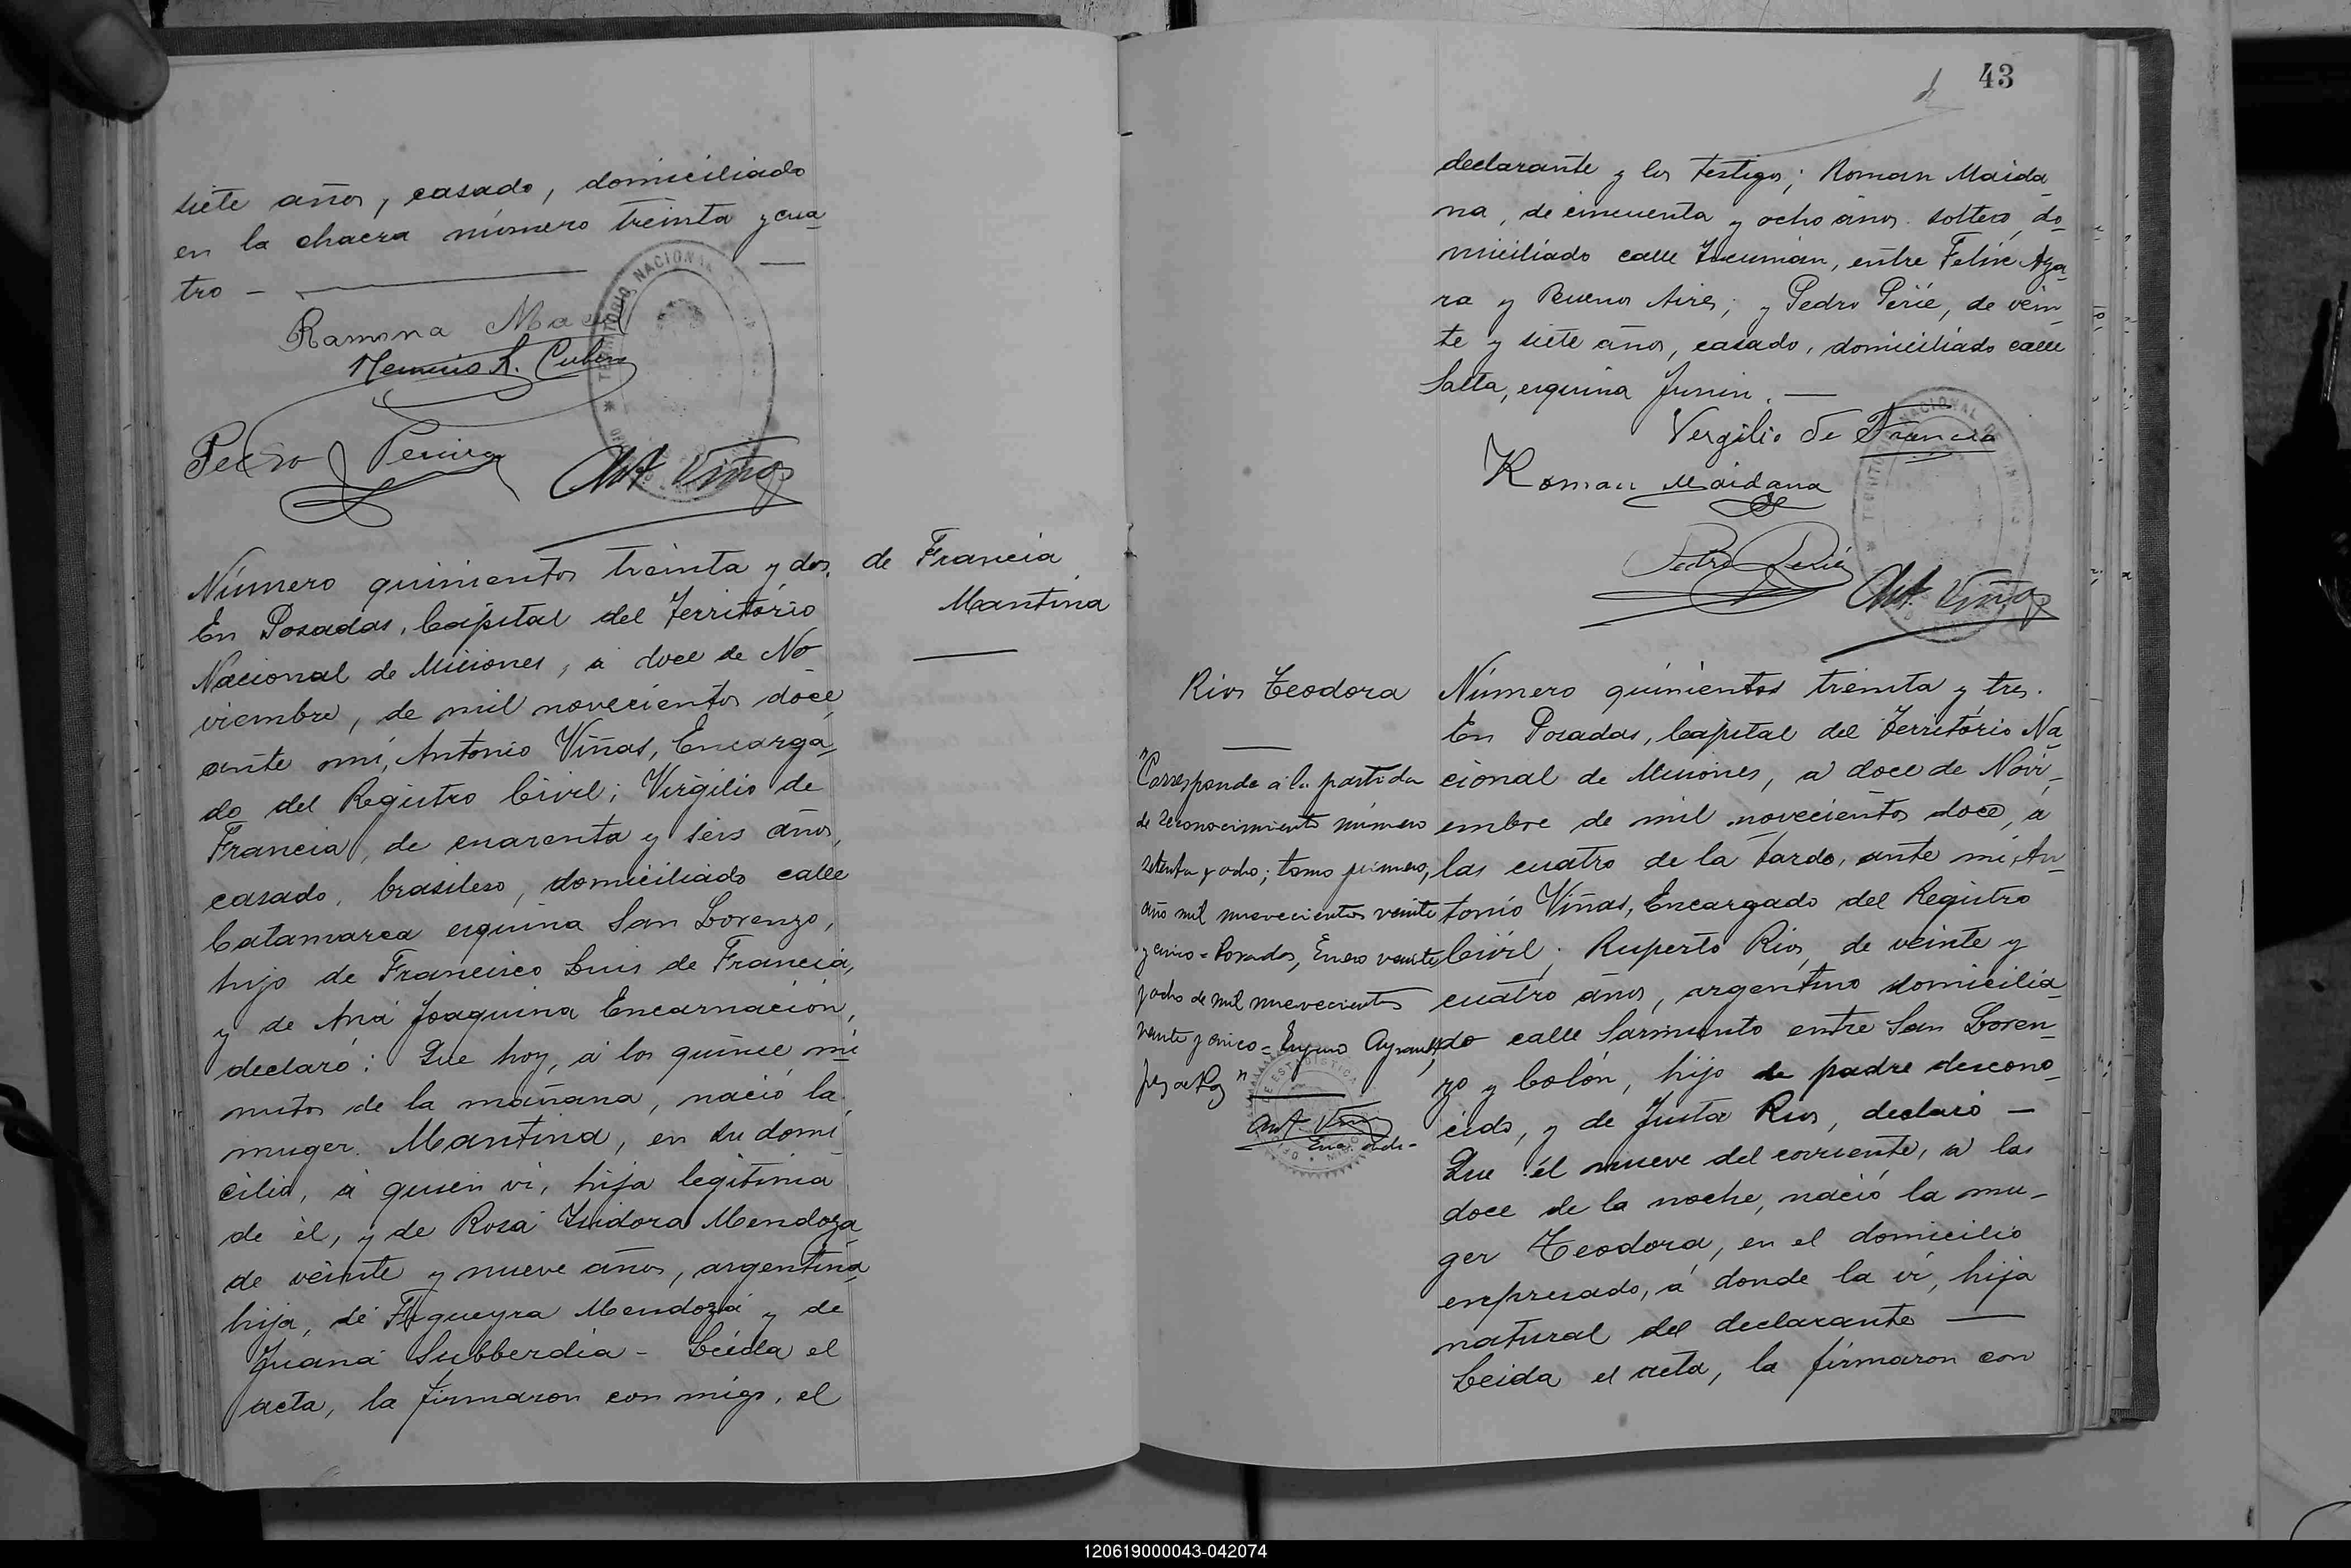 siete años, casado, domiciliado
en la chacra número treinta y cua
tro -
Ramona
Pedro Pereira
Ant Viñas
TERRITORIO NACIONAL
Número quinientos treinta y dos.
En Posadas, Capital del Territorio
Nacional de Misiones, á doce de No-
viembre, de mil novecientos doce,
ante mí, Antonio Viñas, Encarga-
do del Registro Civil; Virgilio de
Francia, de cuarenta y seis años,
casado, brasilero, domiciliado calle
Catamarca esquina San Lorenzo,
hijo de Francisco Luis de Francia,
y de Ana Joaquina Encarnación,
declaró: Que hoy, á los quince mi
nutos de la mañana, nació la
muger Mantina, en su domi-
cilio, á quien ví, hija legítima
de él, y de Rosa Isidora Mendoza
de veinte y nueve años, argentina,
hija, de Figueyra Mendoza y de
Juana Subberdia - Leida el
acta, la firmaron con migo, el
de Francia
Mantina
43
declarante y los testigos; Roman Maida
na, de cincuenta y ocho años soltero, do-
miciliado calle Tucumán, entre Felix Aza-
ra y Buenos Aires; y Pedro Perié, de vein-
te y siete años, casado, domiciliado calle
Salta, esquina Junin. —
Vergilio de Francia
Roman Maidana
Pedro Perié
Ant. Viñas
Rios Teodora
"Corresponde á la partida
de reconocimiento número
setenta y ocho; tomo primero,
año mil novecientos veinte
y cinco = Posadas, Enero veinte
y ocho de mil novecientos
veinte y cinco =
Juez de Paz"
Ant Viñas
Número quinientos treinta y tres.
En Posadas, Capital del Territorio Na-
cional de Misiones, á doce de Novi-
embre de mil novecientos doce, á
las cuatro de la tarde, ante mi, An-
tonio Viñas, Encargado del Registro
Civil; Ruperto Rios, de veinte y
cuatro años, argentino domicilia-
do calle Sarmiento entre San Loren-
zo y Colón, hijo de padre descono-
cido, y de Justa Rios, declaró —
Que el nueve del corriente, á las
doce de la noche, nació la mu-
ger Teodora, en el domicilio
expresado, á donde la ví, hija
natural del declarante —
Leida el acta, la firmaron con
120619000043-042074